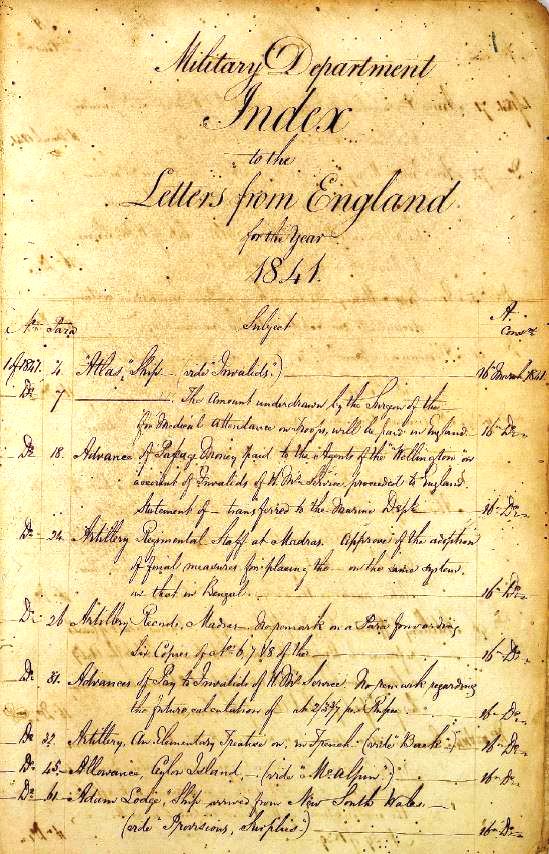 Military Department
Index
to the
Letters from England
for the Year
1841.
No. Para Subject A. Cons.n
1 of 1841. 4 "Atlas," Ship – (vide "Invalids") 16th March 1841
Do 7 The Amount underdrawn by the Surgeon of the
for Medical Attendance on troops, will be paid in England 16 Do
Do 18. Advance of Passage Money paid to the Agents of the "Wellington" on
account of Invalids of H. Ms. Service proceeded to England
Statement of – transferred to the Marine Dept. 16 Do
Do 24. Artillery Regimental Staff at Madras. Approve of the adoption
of final measures for placing the – on the same system
as that in Bengal. 16 Do
Do 26 Artillery Records, Madras – No remark on a Para forwarding
Copies of No. 6 7 & 8 of the 16 Do
Do Advances of Pay to Invalids of H. Ms. Service. No remark regarding
the future calculation of at 2/ per Rupee 16 Do
Do 32. Artillery. An Elementary Treatise on, in French (vide "Book") 16 Do
Do 45. Allowance, Ceylon Island, – (vide "McAlpin") 16 Do
Do "Adam Lodge," Ship arrived from New South Wales –
(vide Provisions, Supplies) 16 Do